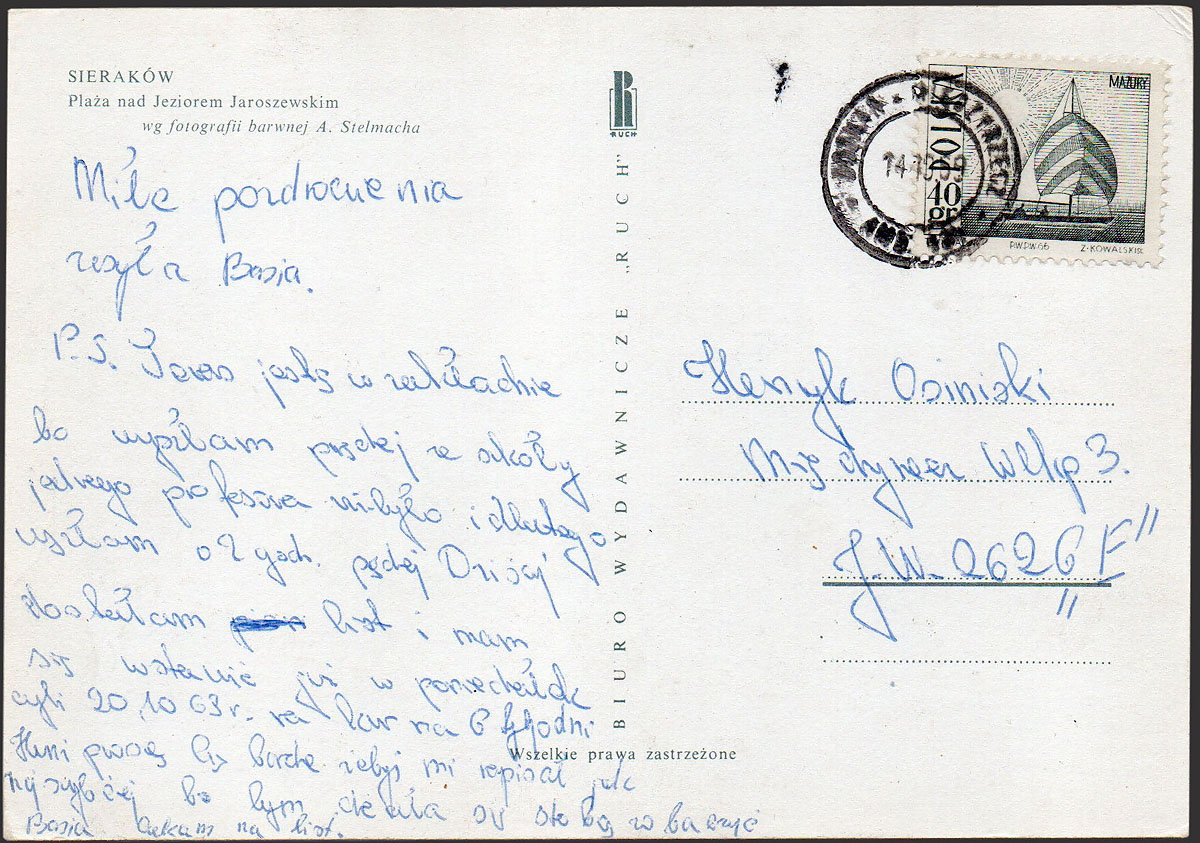 SIERAKÓW
Plaża nad Jeziorem Jaroszewskim
wg fotografii barwnej A. Stelmacha
RUCH
BIURO WYDAWNICZE „RUCH"
Wszelkie prawa zastrzeżone
MAZURY
POLSKA
40 gr
P.W.P.W. 66 Z. KOWALSKI SC.
14.10.69
Miłe pozdrowienia
zesyła Basia.
P.S. Teraz jestę w zakładzie
bo wyszłam prędzej ze szkoły
jednego profesora nibyło i dlatego
wyszłam o 2 godz. prędzej Dzisiaj
dostałam list i mam
się wstawić już w poniedziałek
czyli 20.10 69 r. na kurs na 6 tygodni
Heni proszę Cię bardzo żebyś mi napisał jak
najszybciej bo bym chciała się z tobą zobaczyć
Basia Czekam na list.
Henryk Osiniski
Wlkp 3.
J.W. 2626 „E"